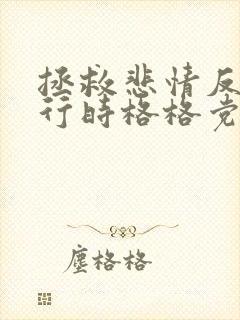 拯救悲情反
行時格格党
塵格格